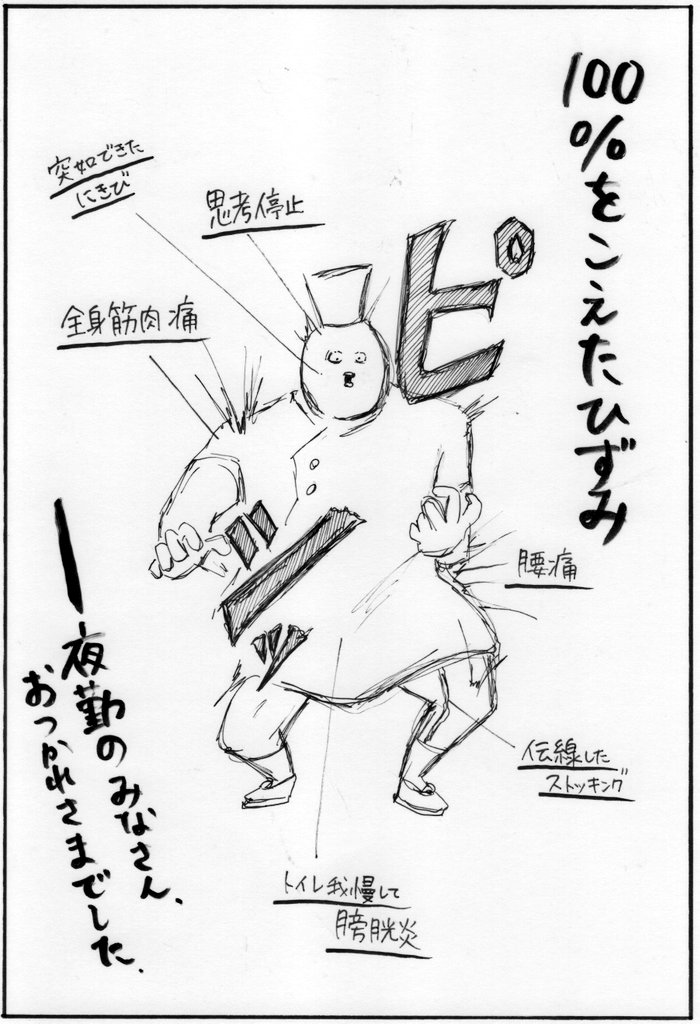 100%をこえたひずみ
突如できた
にきび
思考停止
全身筋肉痛
ピシーッ
腰痛
伝線した
ストッキング
トイレ我慢して
膀胱炎
―夜勤のみなさん、
おつかれさまでした.